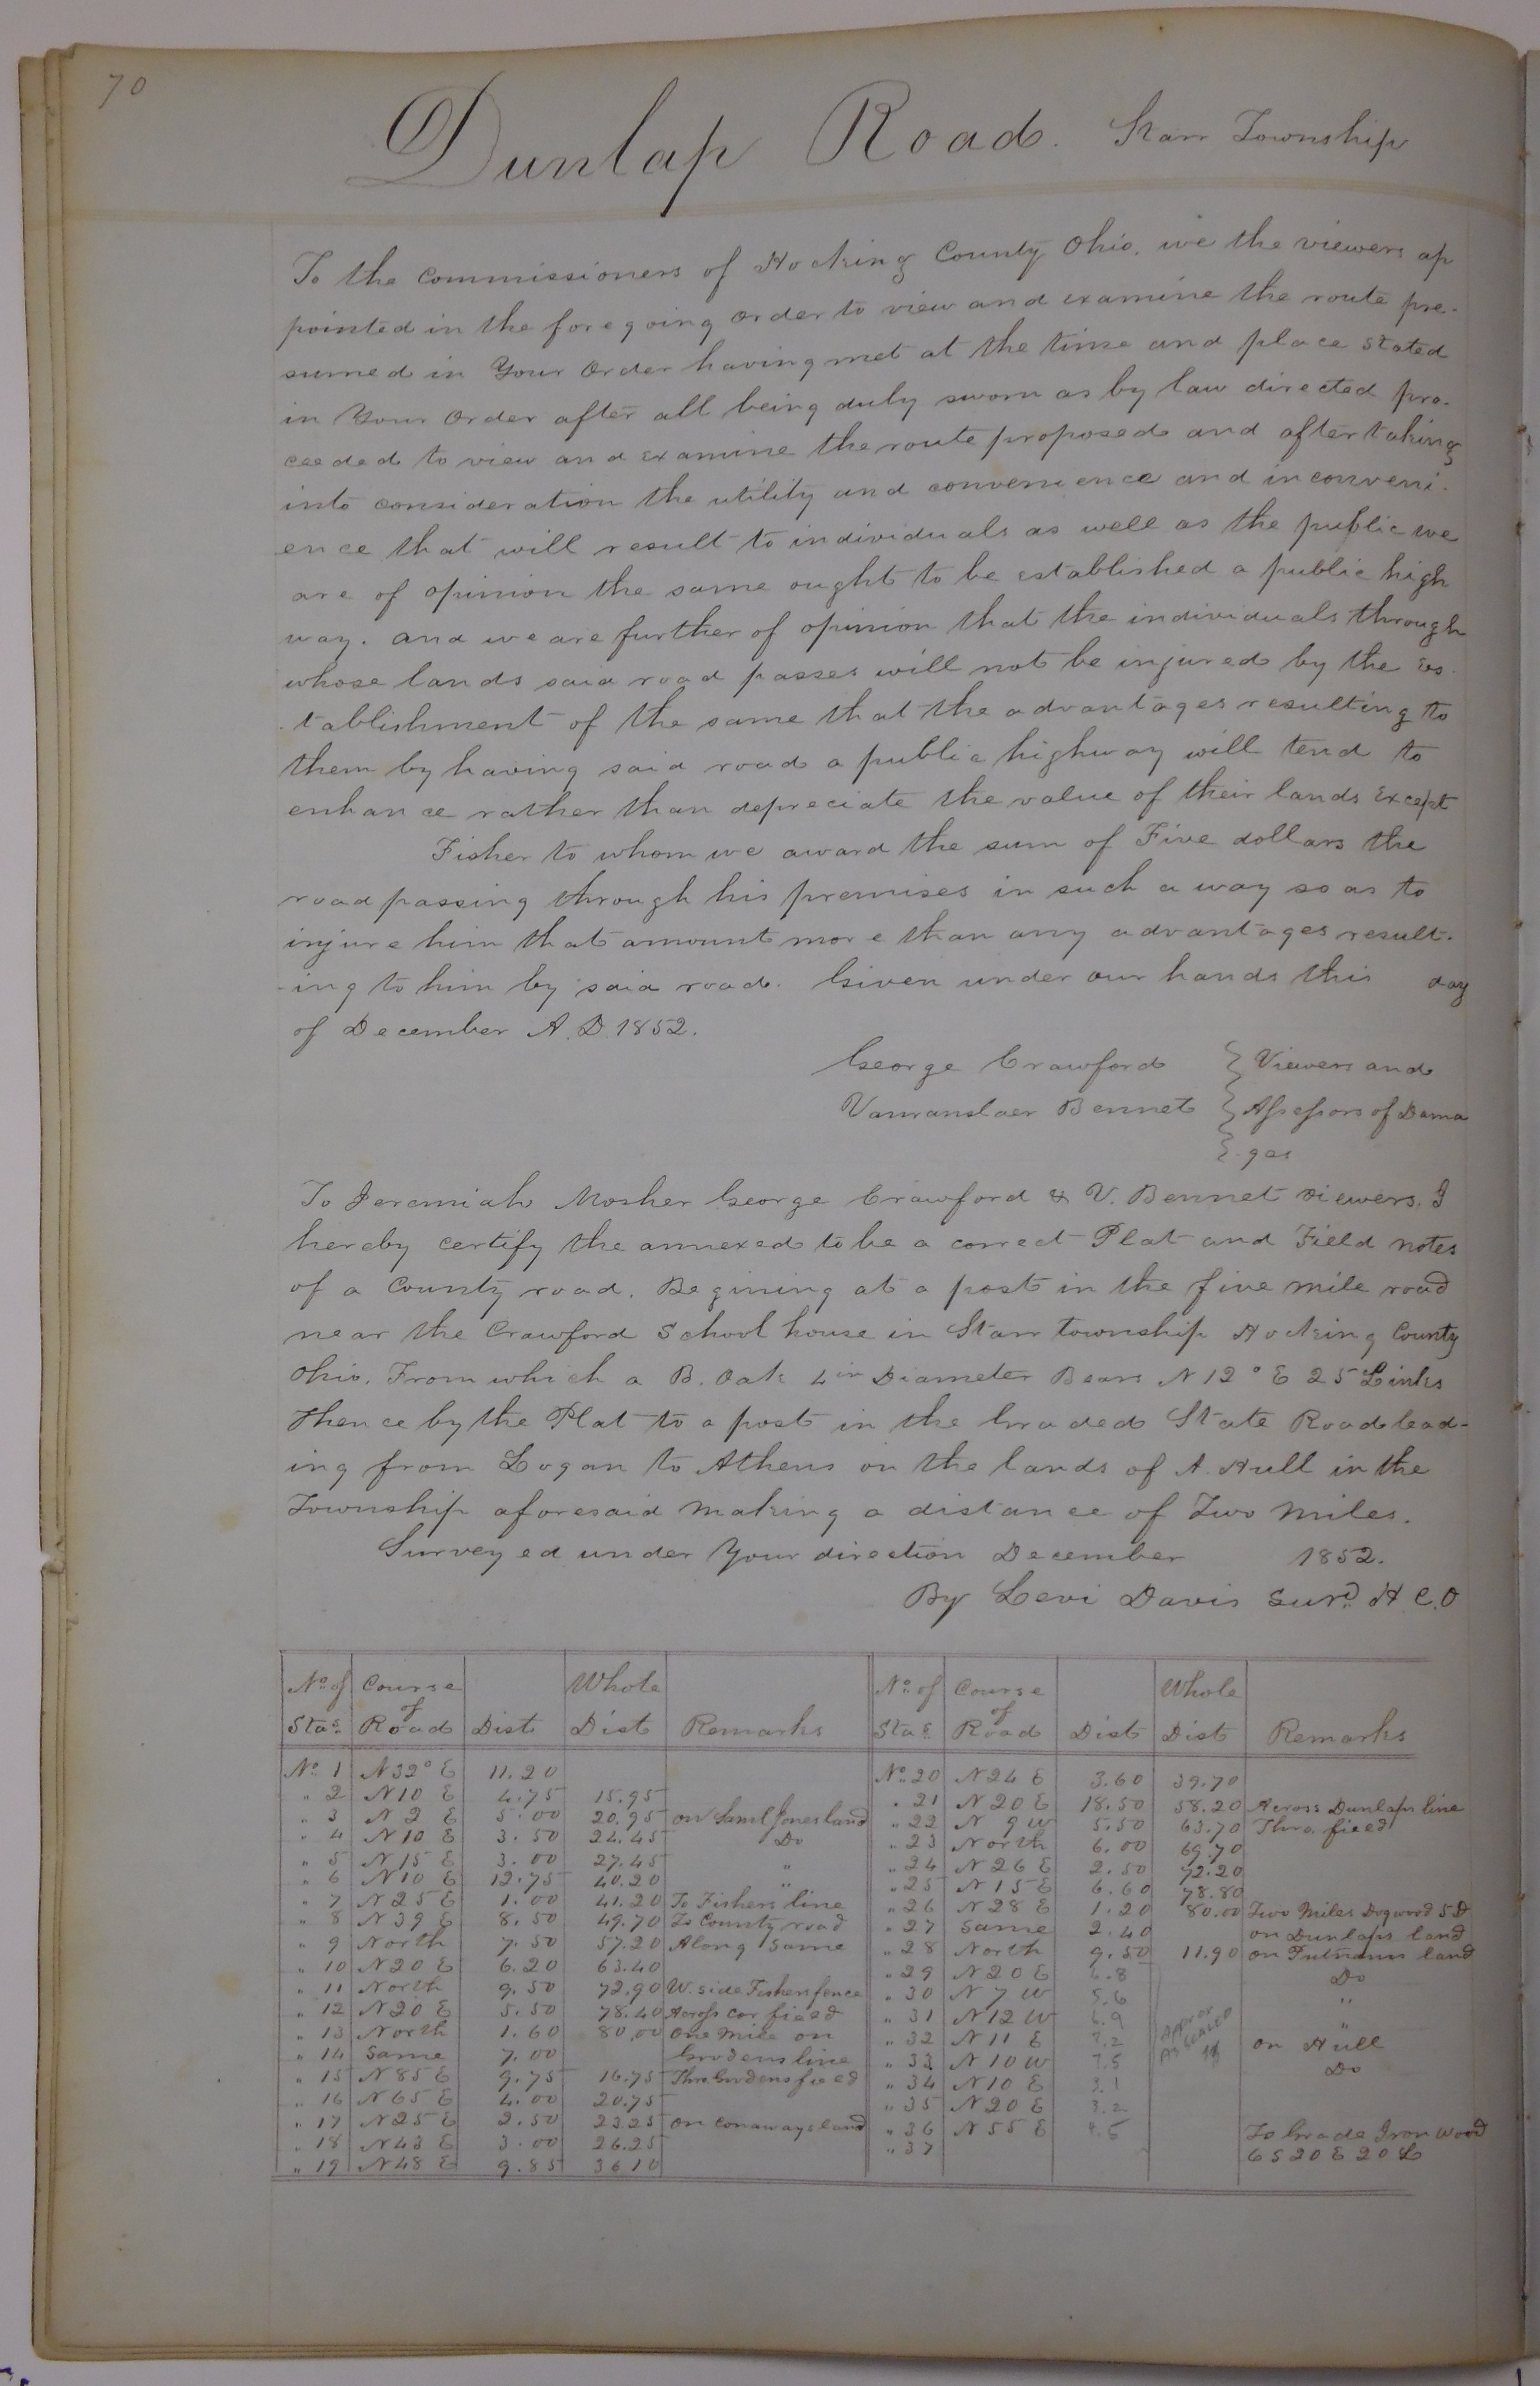 70
Dunlap Road. Starr Township
To the Commissioners of Hocking County Ohio. we the viewers ap
pointed in the foregoing order to view and examine the route pre-
sumed in Your Order having met at the time and place stated
in Your Order after all being duly sworn as by law directed pro-
ceeded to view and examine the route proposed and after taking
into consideration the utility and convenience and inconveni-
ence that will result to individuals as well as the public we
are of opinion the same ought to be established a public high
way. and we are further of opinion that the individuals through
whose lands said road passes will not be injured by the es-
tablishment of the same that the advantages resulting to
them by having said road a public highway will tend to
enhance rather than depreciate the value of their lands Except
Fisher to whom we award the sum of Five dollars the
road passing through his premises in such a way so as to
injure him that amount more than any advantages result-
-ing to him by said road. Given under our hands this day
of December A.D. 1852.
George Crawford } Viewers and
Vanranslaer Bennet } Assessors of Dama
} ges
To Jeremiah Mosher George Crawford & V. Bennet viewers. I
hereby certify the annexed to be a correct Plat and Field notes
of a County road. Begining at a post in the five mile road
near the Crawford School house in Starr township Hocking County
Ohio. From which a B. Oak 4 in Diameter Bears N 12° E 25 Links
Thence by the Plat to a post in the Graded State Road lead-
ing from Logan to Athens on the lands of A. Hull in the
Township aforesaid making a distance of Two Miles.
Surveyed under Your direction December 1852.
By Levi Davis Surd. H. C. O
No. of Stas. Course of Road Dist Whole Dist Remarks No. of Stas. Course of Road Dist Whole Dist Remarks
No. 1 N 32° E 11.20
" 2 N 10 E 4.75 15.95
" 3 N 2 E 5.00 20.95 on Saml Jones land
" 4 N 10 E 3.50 24.45 Do
" 5 N 15 E 3.00 27.45 "
" 6 N 10 E 12.75 40.20 "
" 7 N 25 E 1.00 41.20 To Fishers line
" 8 N 39 E 8.50 49.70 To County road
" 9 North 7.50 57.20 Along Same
" 10 N 20 E 6.20 63.40
" 11 North 9.50 72.90 W. side Fishers fence
" 12 N 20 E 5.50 78.40 Across Cor field
" 13 North 1.60 80.00 One Mile on
" 14 Same 7.00 Grodens line
" 15 N 85 E 9.75 16.75 Thro Grodens field
" 16 N 65 E 4.00 20.75
" 17 N 25 E 2.50 23.25 on Conaways land
" 18 N 43 E 3.00 26.25
" 19 N 48 E 9.85 36 10
No. 20 N 24 E 3.60 39.70
" 21 N 20 E 18.50 58.20 Across Dunlaps line
" 22 N 9 W 5.50 63.70 Thro. field
" 23 North 6.00 69.70
" 24 N 26 E 2.50 72.20
" 25 N 15 E 6.60 78.80
" 26 N 28 E 1.20 80.00 Two Miles Dogwood 5 D
" 27 Same 2.40 on Dunlaps land
" 28 North 9.50 11.90 on Putnams land
" 29 N 20 E 6.8 Do
" 30 N 7 W 5.6 "
" 31 N 12 W 6.9 "
" 32 N 11 E 7.2 on Hull
" 33 N 10 W 7.5 Do
" 34 N 10 E 3.1
" 35 N 20 E 3.2
" 36 N 55 E 4.5 To Grade Iron wood
" 37 6 S 20 E 20 L
APPROX
AS SCALED